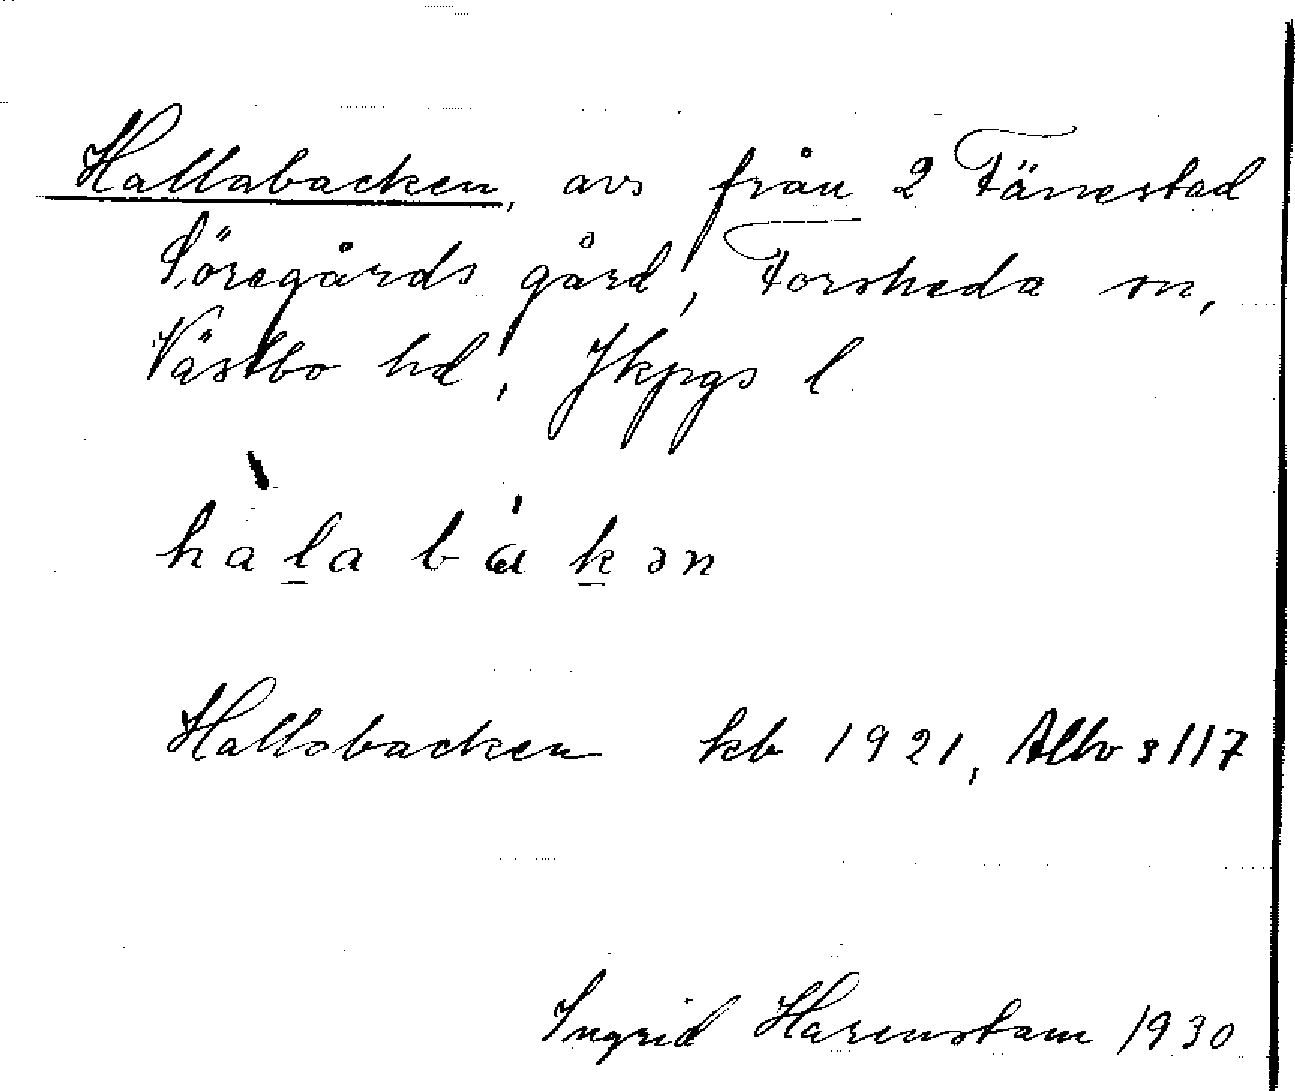 Hallabacken, avs från 2 Färrestad
Söregårds gård, Forsheda sn,
Västbo hd, Jkpgs l
hàl̠a bák̠ən
Hallabacken kb 1921, Allv s 117
Ingrid Harenstam 1930